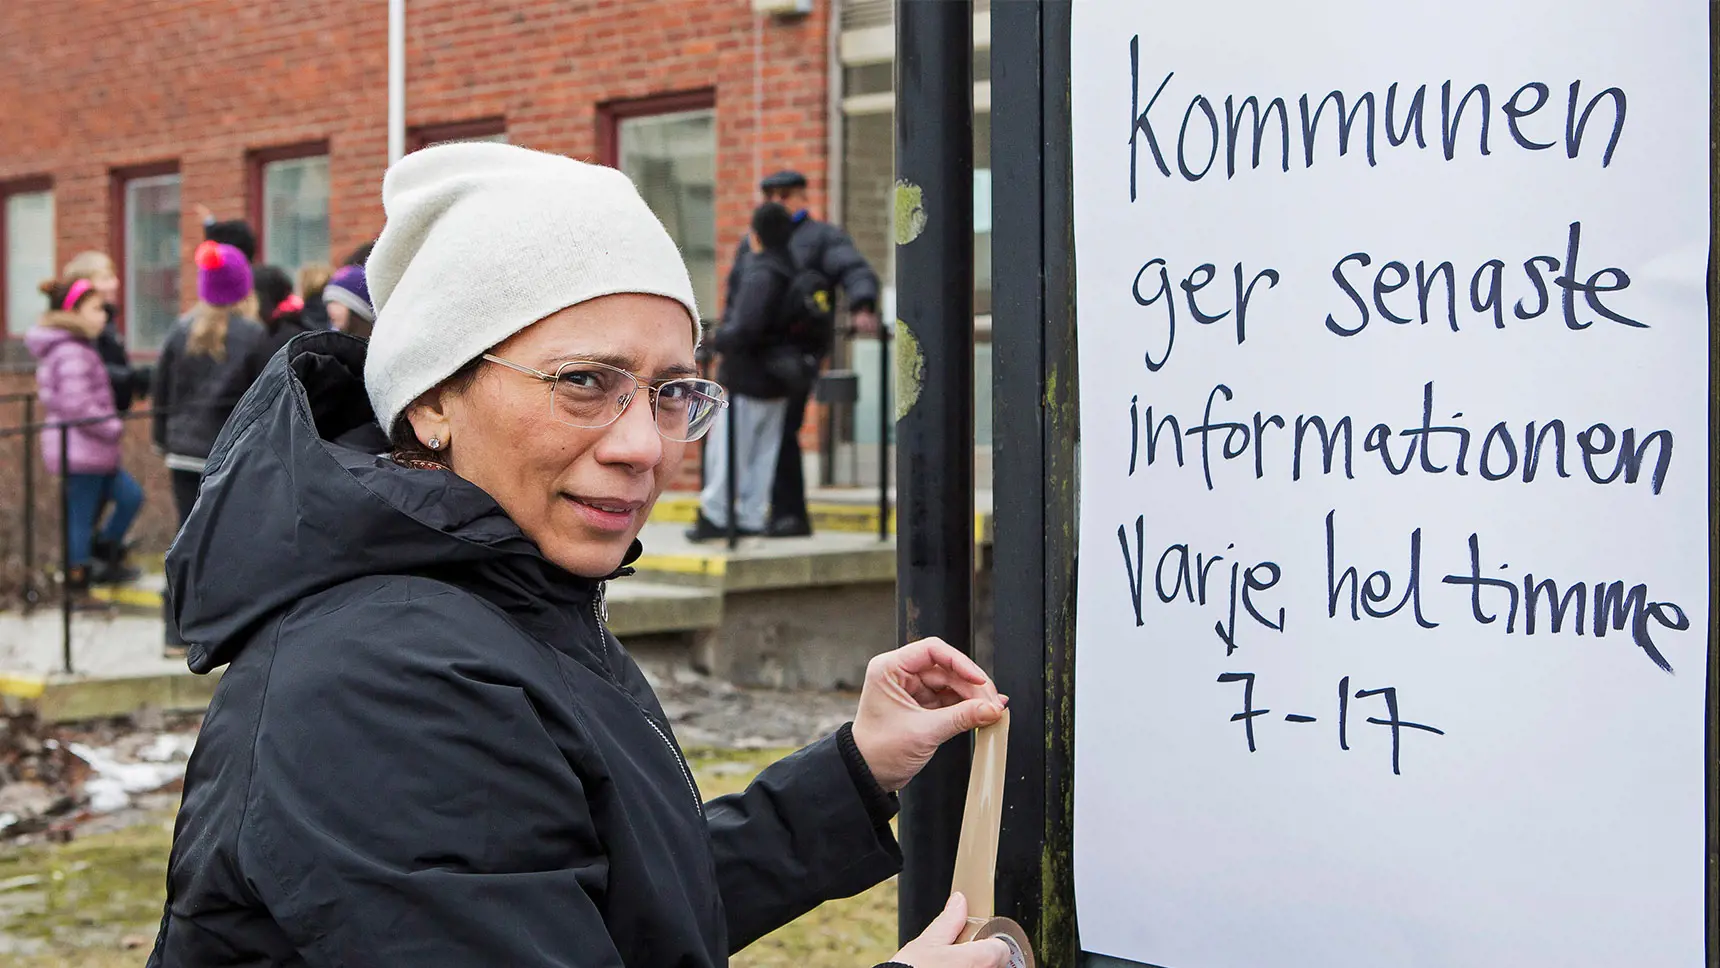 Kommunen
ger senaste
informationen
Varje hel timme
7-17